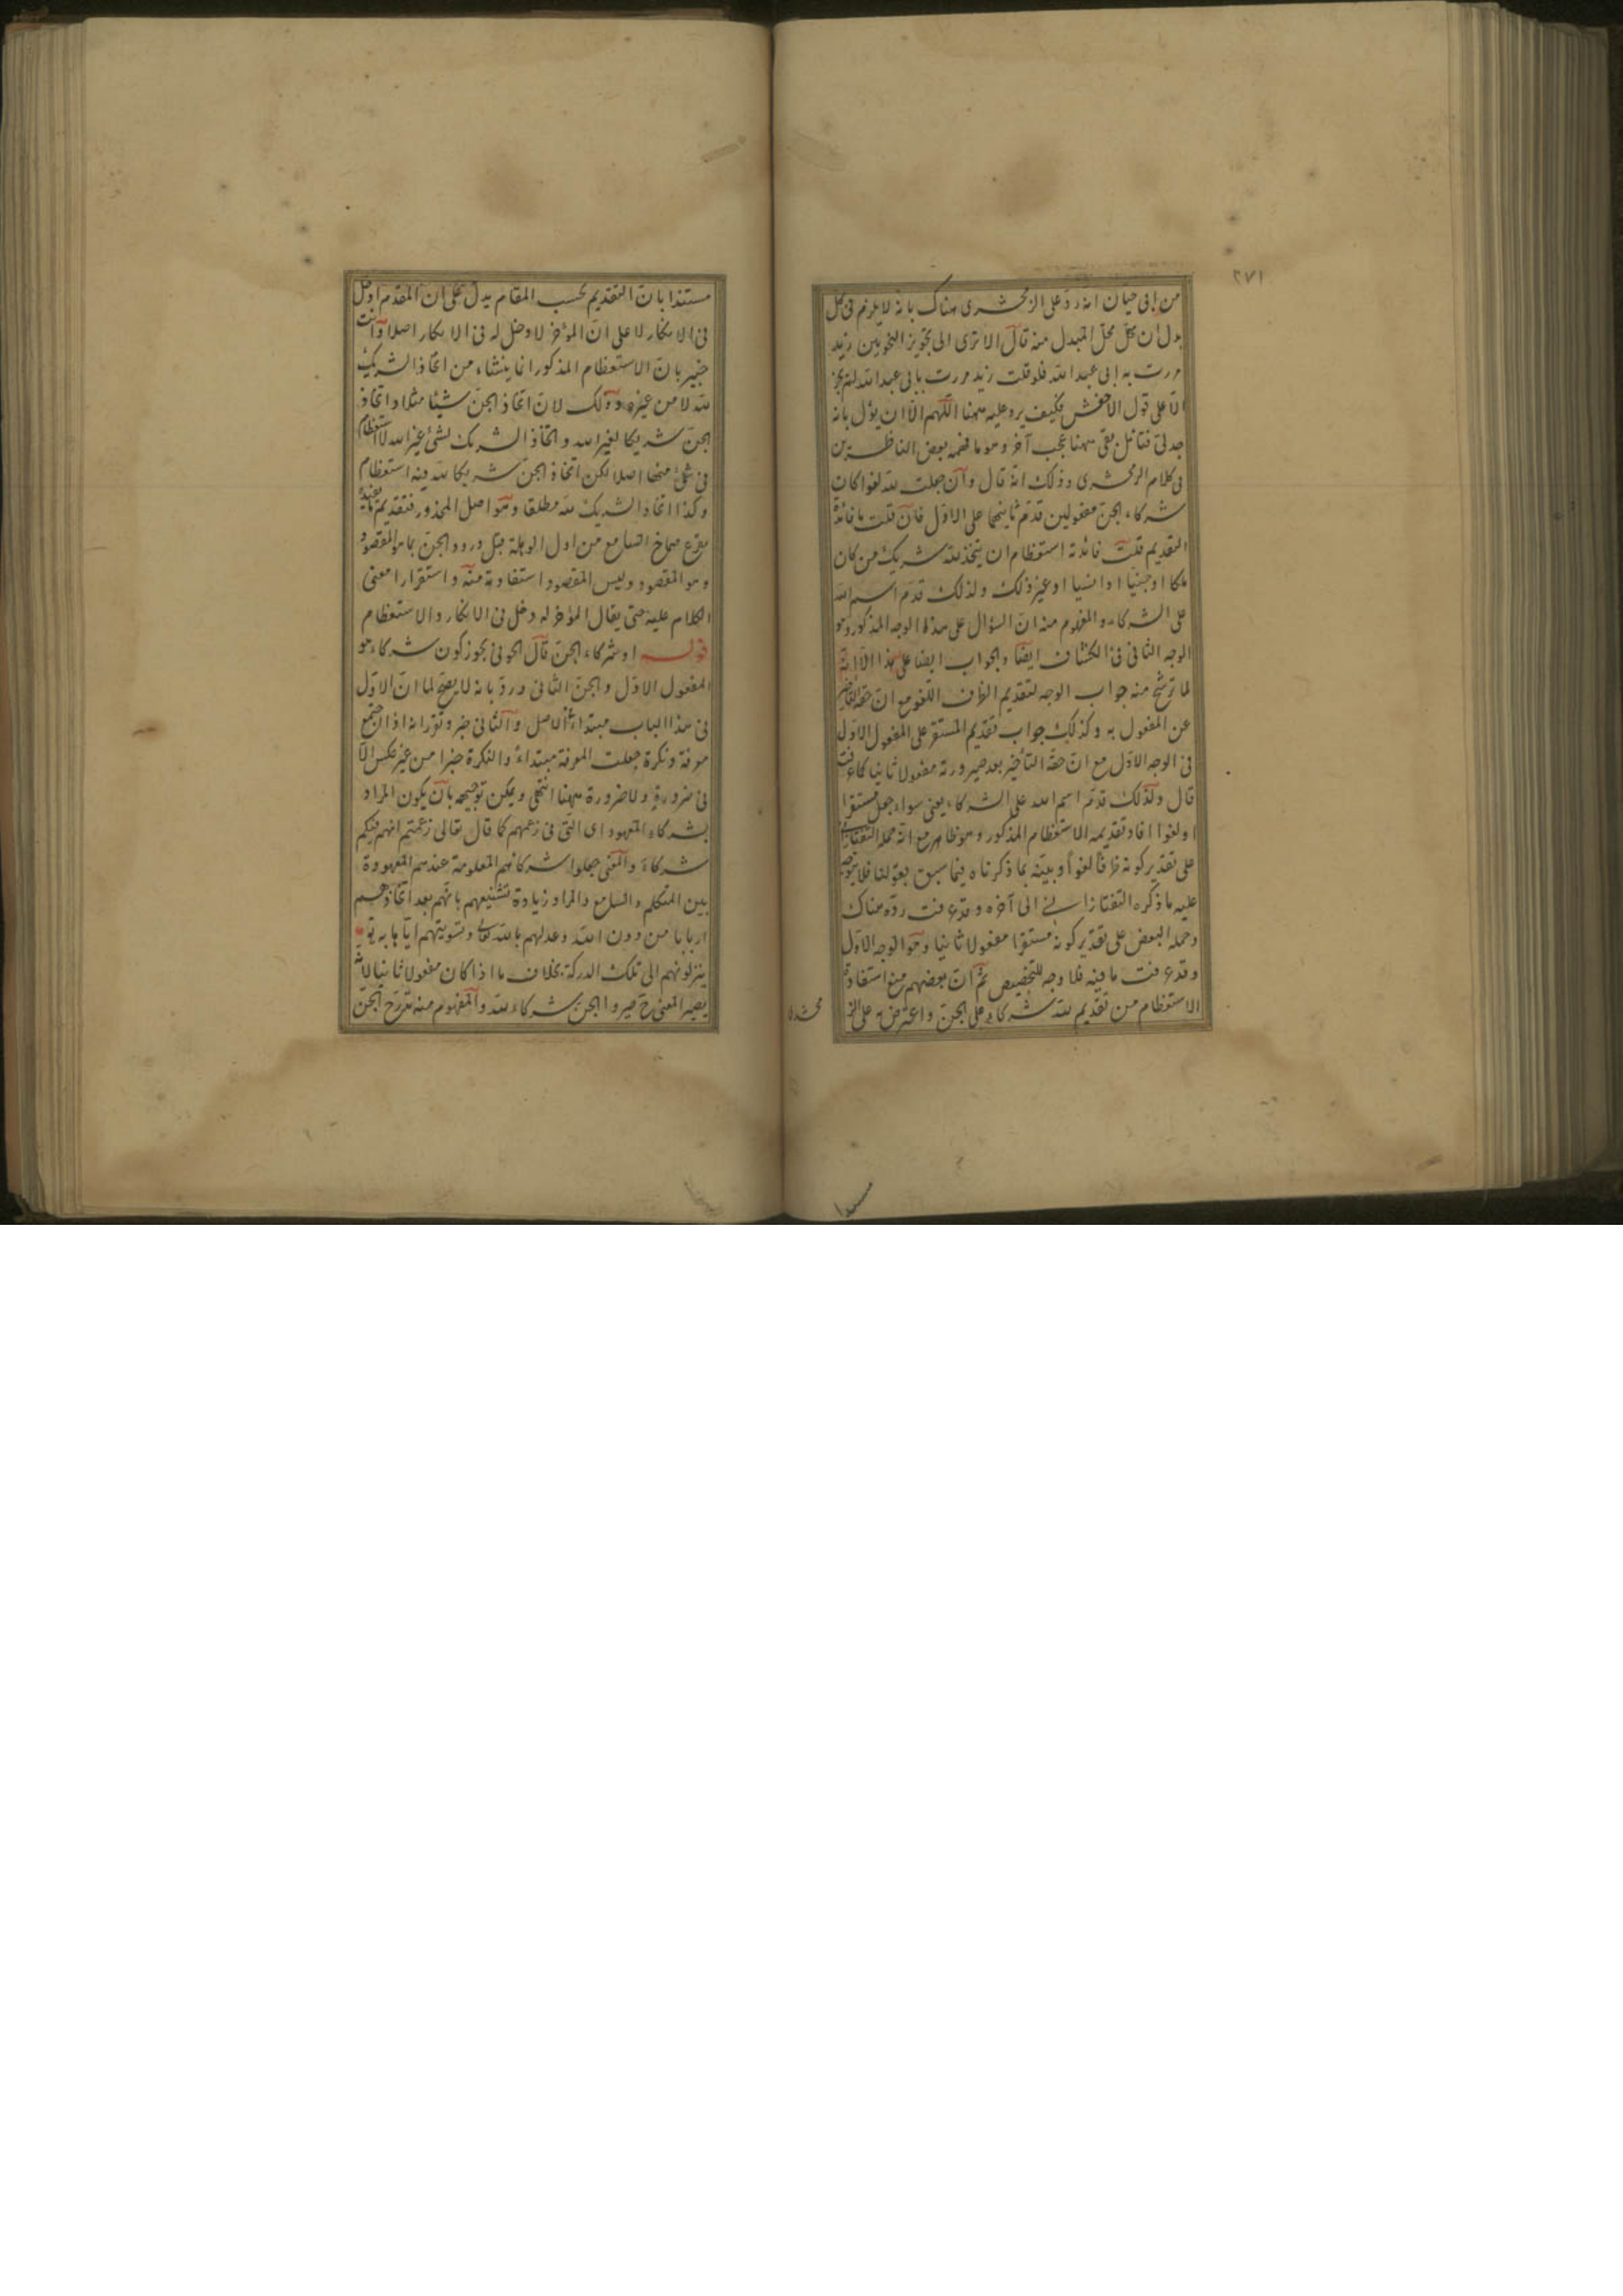 ٢٧١
من ابى حيان انه ردّ على الزمخشرى هناك بانه لا يلزم فى كل
بدل ان يحلّ محلّ المبدل منه قال الا ترى الى تجويز النحويين زيد
مررت به ابى عبد الله فلو قلت زيد مررت بابى عبد الله لم يجز
الّا على قول الاخفش فكيف يرد عليه ههنا اللّهم الّا ان يؤل بانه
جدلىّ فتامّل بقى ههنا عجب آخر وهو ما فهمه بعض الناظرين
فى كلام الزمخشرى وذلك انّه قال وان جعلت لله لغوا كان
شركاء الجنّ مفعولين قدّم ثانيهما على الاوّل فان قلت ما فائدة
التقديم قلت فائدته استعظام ان يتخذ لله شريك من كان
ملكا او جنيا او انسيا او غير ذلك ولذلك قدّم اسم الله
على الشركاء والمفهوم منه انّ السؤال على هذا الوجه المذكور وهو
الوجه الثانى فى الكشّاف ايضا والجواب ايضا على هذا الّا انّه
لما ترشّح منه جواب الوجه لتقديم الظرف اللغو مع انّ حقّه التاخير
عن المفعول به وكذلك جواب تقديم المستقر على المفعول الاوّل
فى الوجه الاوّل مع انّ حقّه التأخير بعد صيرورته مفعولا ثانيا كما عرفت
قال ولذلك قدّم اسم الله على الشركاء يعنى سواء جعل مستقرا
او لغوا افاد تقديمه الاستعظام المذكور وهو ظاهر مع انّه حمله التفتازانى
على تقدير كونه ظرفا لغوا وبيّنه بما ذكرناه فيما سبق بقولنا فلا يتوجه
عليه ما ذكره التفتازانى الى آخره وقد عرفت ردّه هناك
وحمله البعض على تقدير كونه مستقرا مفعولا ثانيا وهو الوجه الاوّل
وقد عرفت ما فيه فلا وجه للتخصيص ثمّ انّ بعضهم منع استفادة
الاستعظام من تقديم لله شركاء على الجنّ واعترض به على
مستندا
مستندا بانّ التقديم بحسب المقام يدلّ على ان المقدّم ادخل
فى الانكار لا على انّ المؤخر لا دخل له فى الانكار اصلا وانت
خبير بانّ الاستعظام المذكور انما ينشاء من اتخاذ الشريك
لله لا من غيره وذلك لانّ اتخاذ الجنّ شيئا مثلا واتخاذ
الجنّ شريكا لغير الله واتخاذ الشريك لشئ غير الله لا استعظام
فى شئ منها اصلا لكن اتخاذ الجنّ شريكا لله فيه استعظام
وكذا اتخاذ الشريك لله مطلقا وهو اصل المحذور فتقديم ما يفيده
يقرع صماخ السامع من اول الوهلة قبل ورود الجنّ بما هو المقصود
وهو المقصود وليس المقصود استفادته منه واستقرار معنى
الكلام عليه حتى يقال المؤخر له دخل فى الانكار والاستعظام
قوله او شركاء الجنّ قال الحوفى يجوز كون شركاء هو
المفعول الاوّل والجنّ الثانى وردّ بانه لا يصحّ لما انّ الاوّل
فى هذا الباب مبتداء فى الاصل والثانى خبر وتقرر انه اذا اجتمع
معرفة ونكرة جعلت المعرفة مبتداء والنكرة خبرا من غير عكس الّا
فى ضرورة ولا ضرورة ههنا انتهى ويمكن توجيهه بان يكون المراد
بشركاء المعهود اى التى فى زعمهم كما قال تعالى زعمتم انهم فيكم
شركاء والمعنى جعلوا شركائهم المعلومة عندهم المعهودة
بين المتكلم والسامع والمراد زيادة تشنيعهم بانّهم بعد اتخاذهم
اربابا من دون الله وعدلهم بالله تعالى وتسويتهم ايّاها به
ينزلونهم الى تلك الدركة بخلاف ما اذا كان مفعولا ثانيا لانّه
يصير المعنى ح صيروا الجنّ شركاء لله والمفهوم منه الجنّ